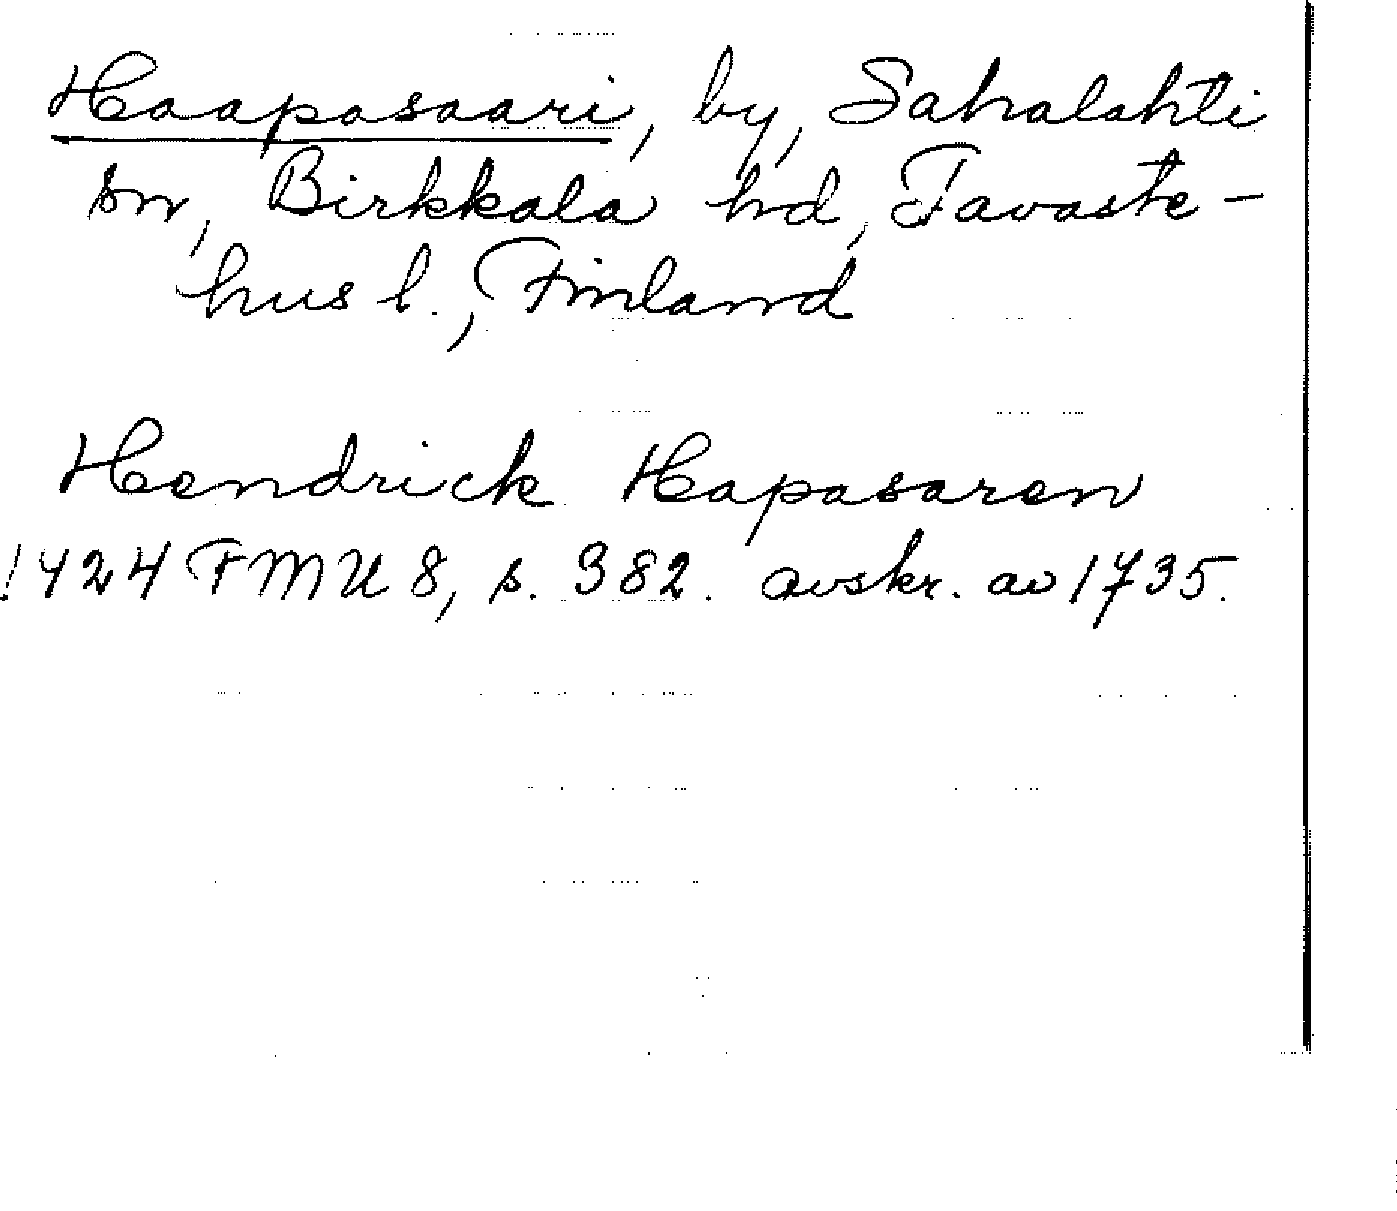 Haapasaari, by, Sahalahti
sn, Birkkala hd, Tavaste-
hus l., Finland
Hendrick Hapasaren
1424 FMU 8, s. 382. avskr. av 1735.